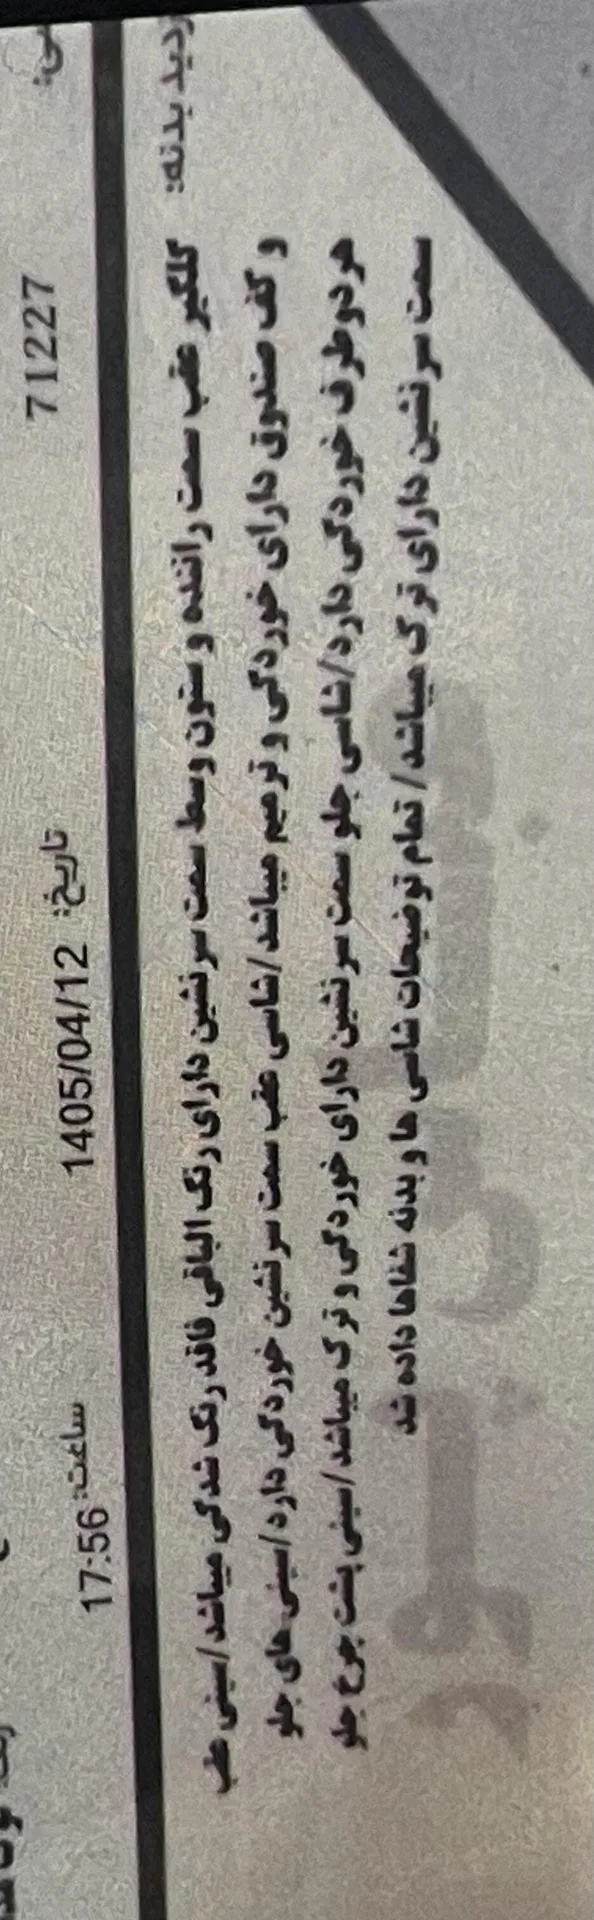 71227
تاریخ: 1405/04/12
ساعت: 17:56
بدنه:
گلگیر عقب سمت راننده و ستون وسط سمت سرنشین دارای رنگ الباقی فاقد رنگ شدگی میباشد/سینی عقب
و کف صندوق دارای خوردگی و ترمیم میباشد/شاسی عقب سمت سرنشین خوردگی دارد/سینی های جلو
هردوطرف خوردگی دارد/شاسی جلو سمت سرنشین دارای خوردگی و ترک میباشد/سینی پشت چرخ جلو
سمت سرنشین دارای ترک میباشد/ تمام توضیحات شاسی ها و بدنه شفاها داده شد